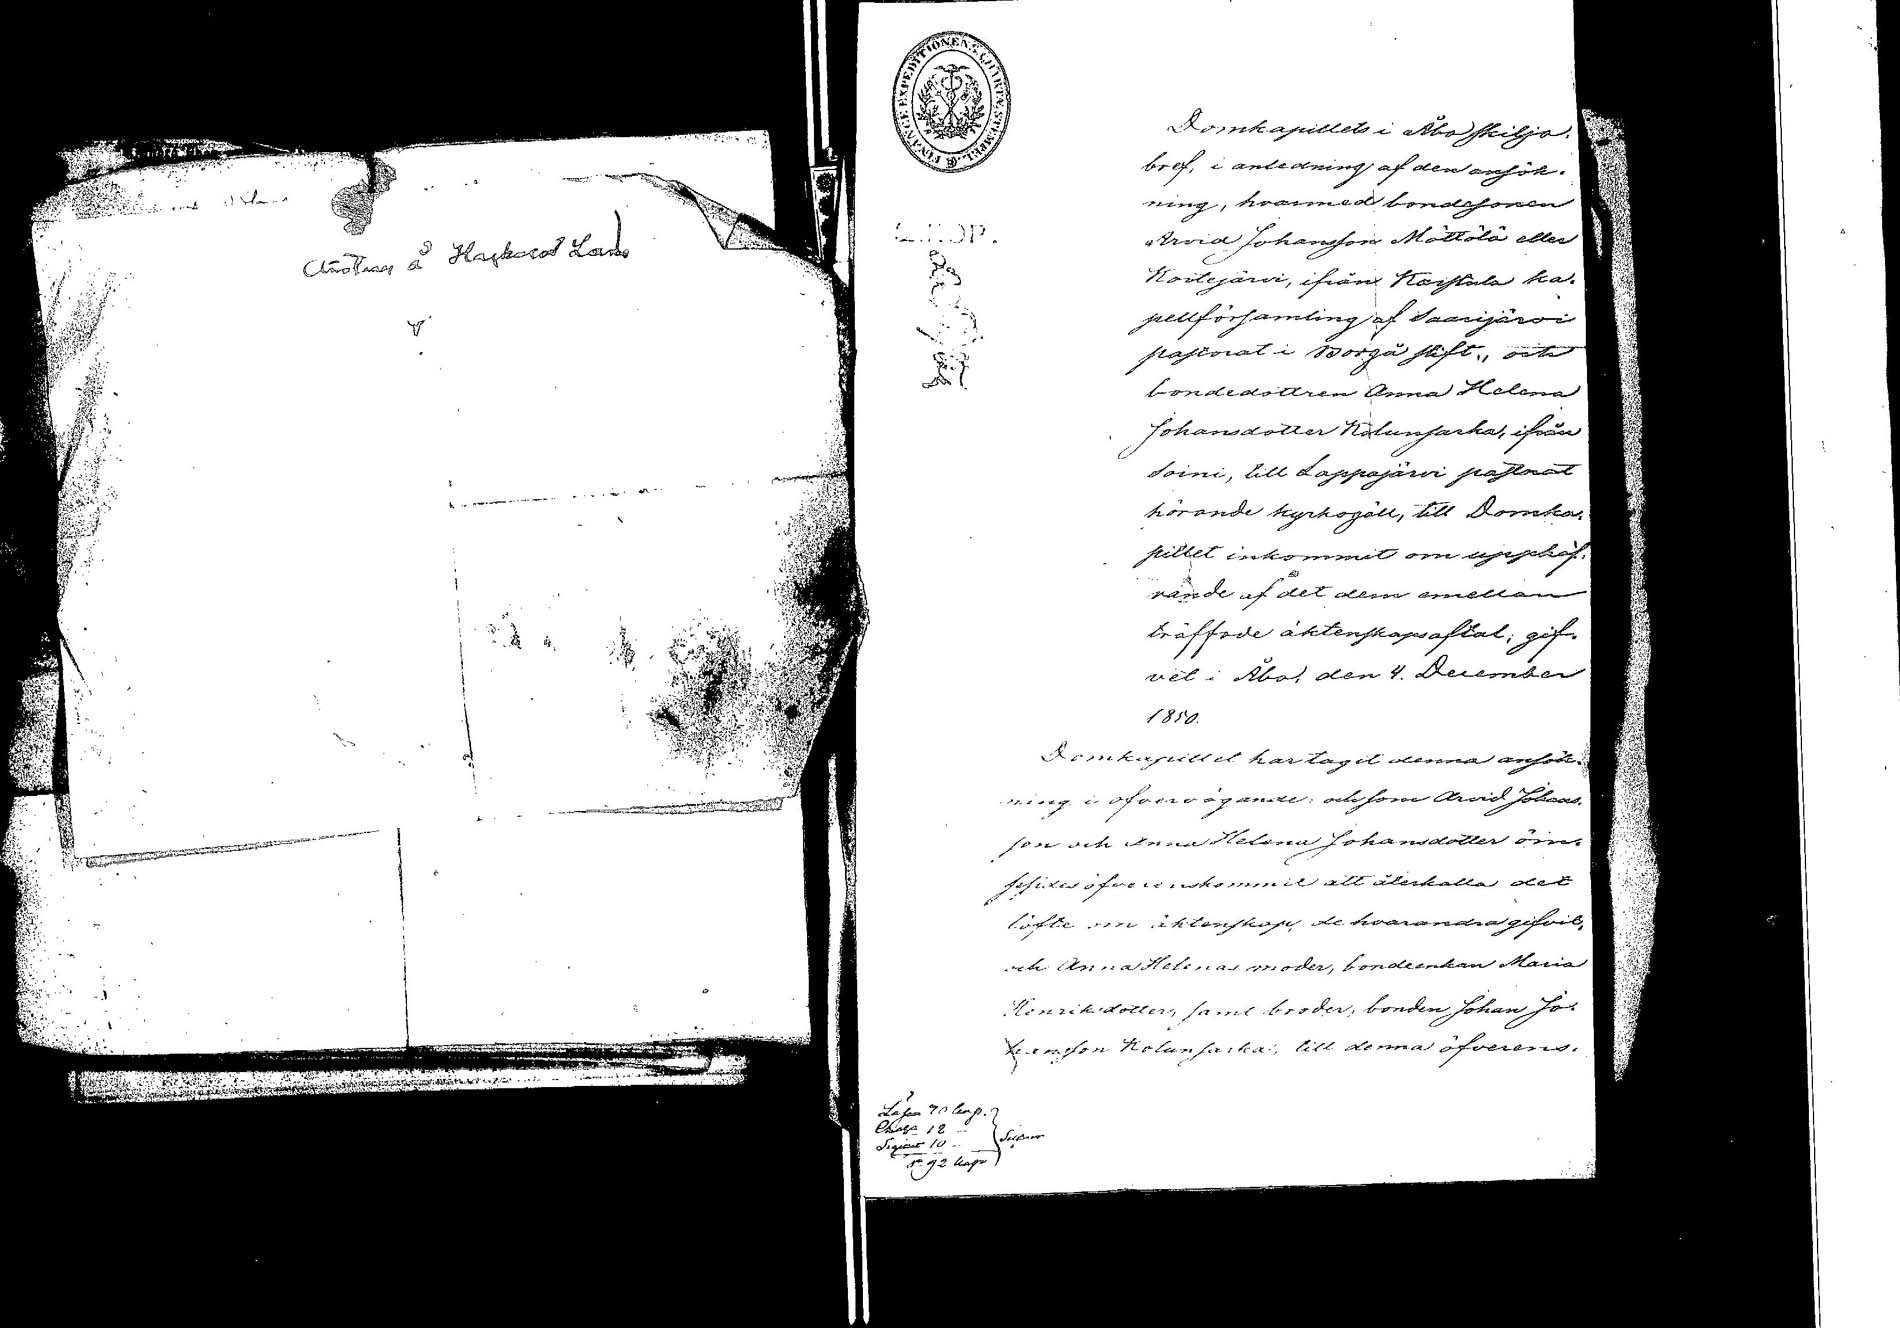 FINANCE EXPEDITIONENS CHARTÆ STEMPEL
KOP.
Domkapitlets i Åbo skiljo-
bref, i anledning af den ansök-
ning, hvarmed bondesonen
Arvid Johansson Möttölä eller
Kortejärvi, ifrån Karstula ka-
pellförsamling af Saarijärvi
pastorat i Borgå stift, och
bondedottren Anna Helena
Johansdotter Kolunsarka, ifrån
Soini, till Lappajärvi pastorat
hörande kyrkogäll, till Domka-
pitlet inkommit om upphäf-
vande af det dem emellan
träffade äktenskapsaftal; gif-
vet i Åbo, den 4. December
1850.
Domkapitlet har tagit denna ansök-
ning i öfvervägande; och som Arvid Johans-
son och Anna Helena Johansdotter öm-
sesides öfverenskommit att återkalla det
löfte om äktenskap, de hvarandra gifvit,
och Anna Helenas moder, bondeenkan Maria
Henriksdotter, samt broder, bonden Johan Jo-
hansson Kolunsarka, till denna öfverens-
Lösen 70 kop.
Charta 12
Sigillet 10
Sr 92 kop